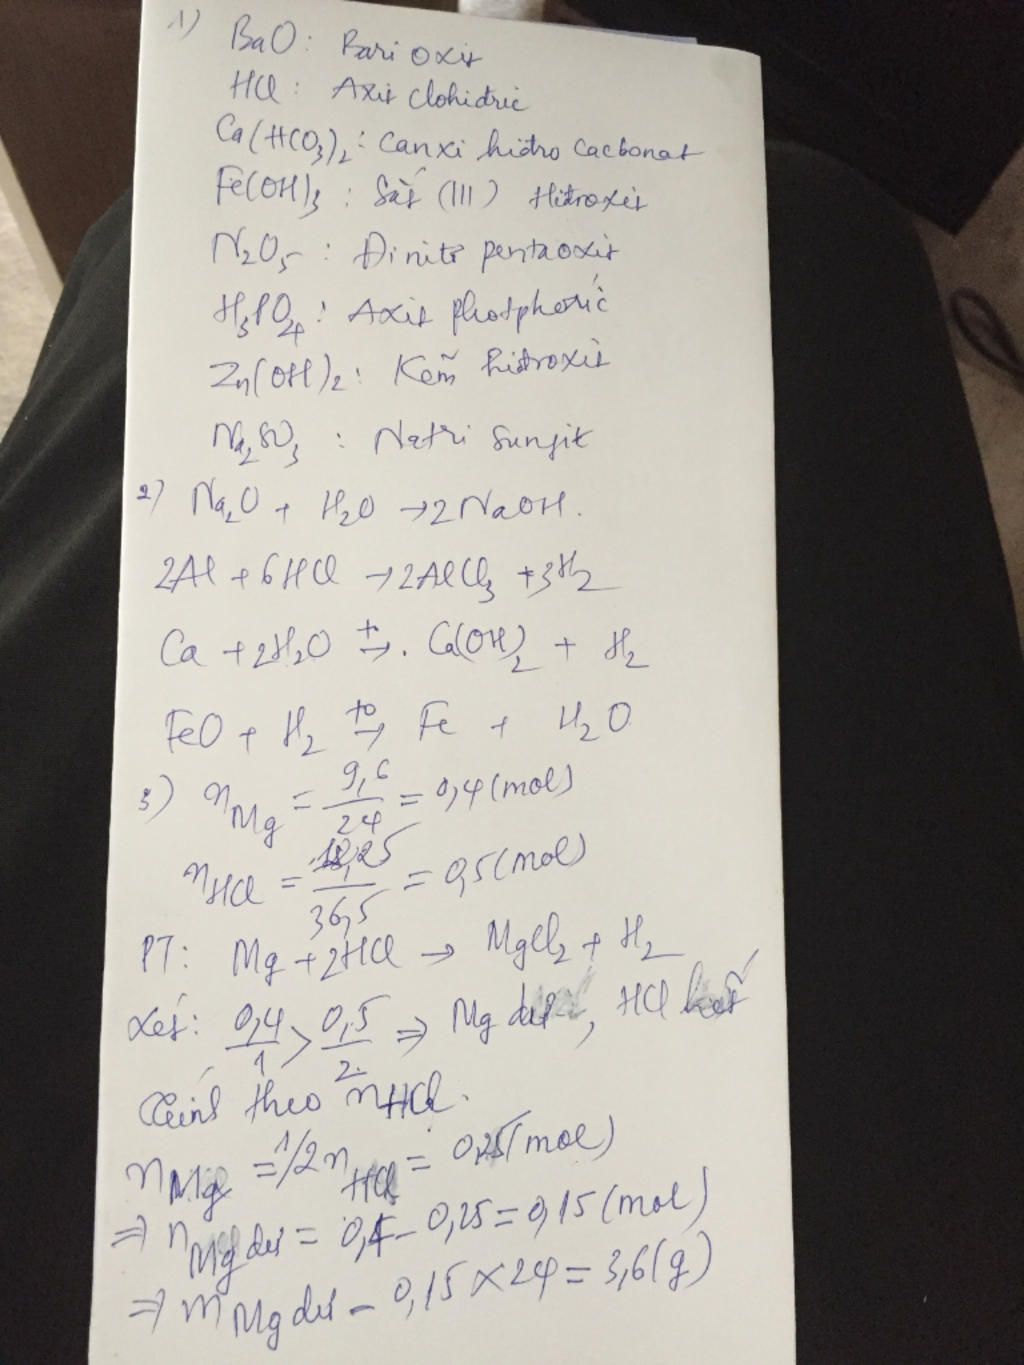 1) BaO : Bari oxit
HCl : Axit clohidric
Ca(HCO3)2 : Canxi hidro cacbonat
Fe(OH)3 : Sắt (III) Hidroxit
N2O5 : Đinitơ pentaoxit
H3PO4 : Axit photphoric
Zn(OH)2 : Kẽm hidroxit
Na2SO3 : Natri Sunfit
2) Na2O + H2O → 2NaOH.
2Al + 6HCl → 2AlCl3 + 3H2
Ca + 2H2O → Ca(OH)2 + H2
FeO + H2 →to Fe + H2O
3) nMg = 9,6/24 = 0,4 (mol)
nHCl = 18,25/36,5 = 0,5 (mol)
PT: Mg + 2HCl → MgCl2 + H2
Xét: 0,4/1 > 0,5/2 ⇒ Mg dư, HCl hết
Tính theo nHCl.
nMg = 1/2 nHCl = 0,25 (mol)
⇒ nMg dư = 0,4 - 0,25 = 0,15 (mol)
⇒ mMg dư = 0,15 × 24 = 3,6 (g)